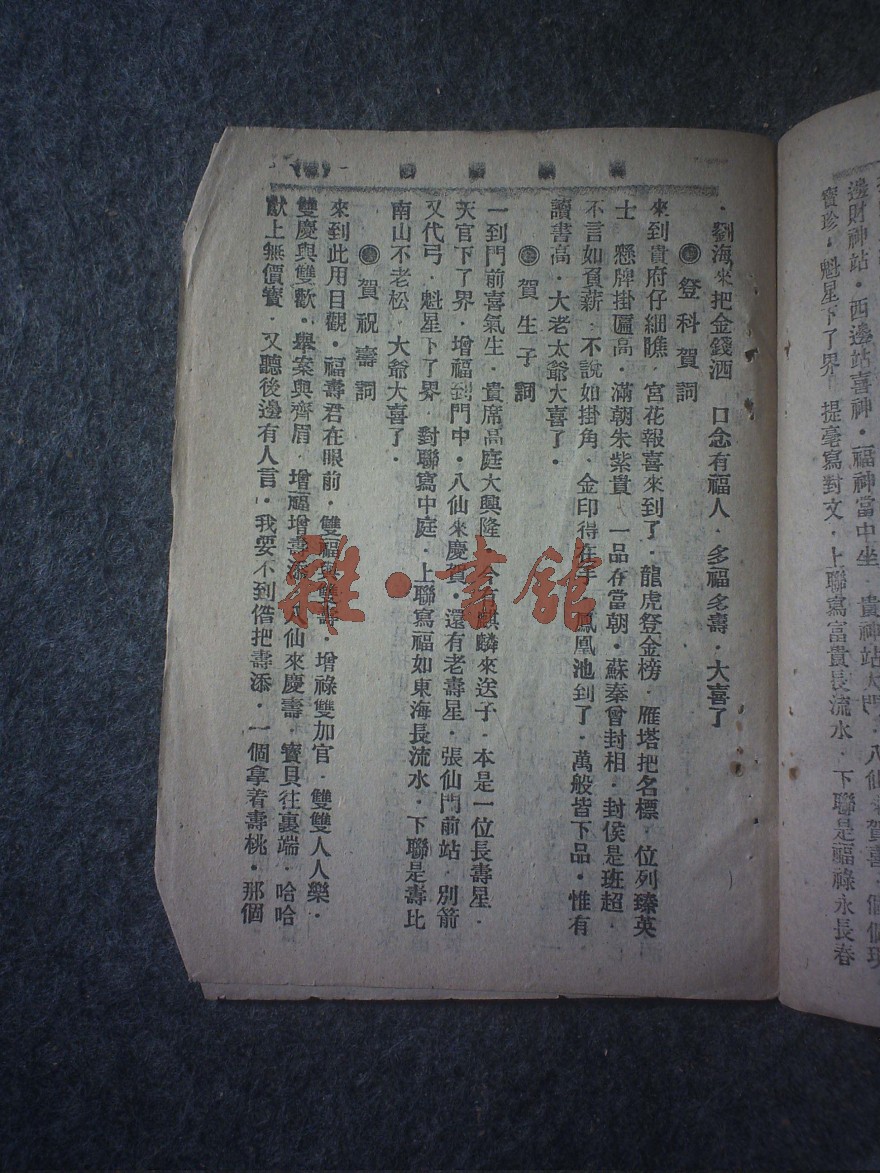 邊財神站．西邊站喜神．福神當中坐．貴神站大門．八仙來賀喜．個個現
寶珍．魁星下了界．提毫寫對文．上聯寫富貴長流水．下聯是福祿永長春
．劉海來把金錢洒　口念有福人．多福多壽．大喜了
登科賀詞
來到貴府仔細瞧．宮花報喜來到了．龍虎登金榜．雁塔把名標．位列臻英
士　懸牌掛匾高．滿朝朱紫貴　一品在當朝．蘇秦曾封相．封侯是班超．
不言如負薪．不說如掛角．金印得在手　鳳凰池到了．萬般皆下品．惟有
讀書高．大老太爺大喜了．
賀生子詞
一到門前喜氣生．貴席高庭大興隆　今有麒麟來送子．本是一位長壽星．
天官下了界．增福到門中．八仙來慶賀．還有老壽星．張仙門前站．別箭
又代弓．魁星下了界　對聯寫中庭．上聯寫福如東海長流水．下聯是壽比
南山不老松．大爺大喜了．
賀祝壽詞
來到此用目觀．福壽君在眼前．雙福與雙壽．增祿雙加官．雙雙人人樂．
雙慶與雙歡．舉案與齊眉．增福增壽添　八仙來慶壽．寶貝往裏端．哈哈
獻上無價寶．又聽後邊有人言．我要不到借把壽添．一個拿着壽桃．那個
雜·書館